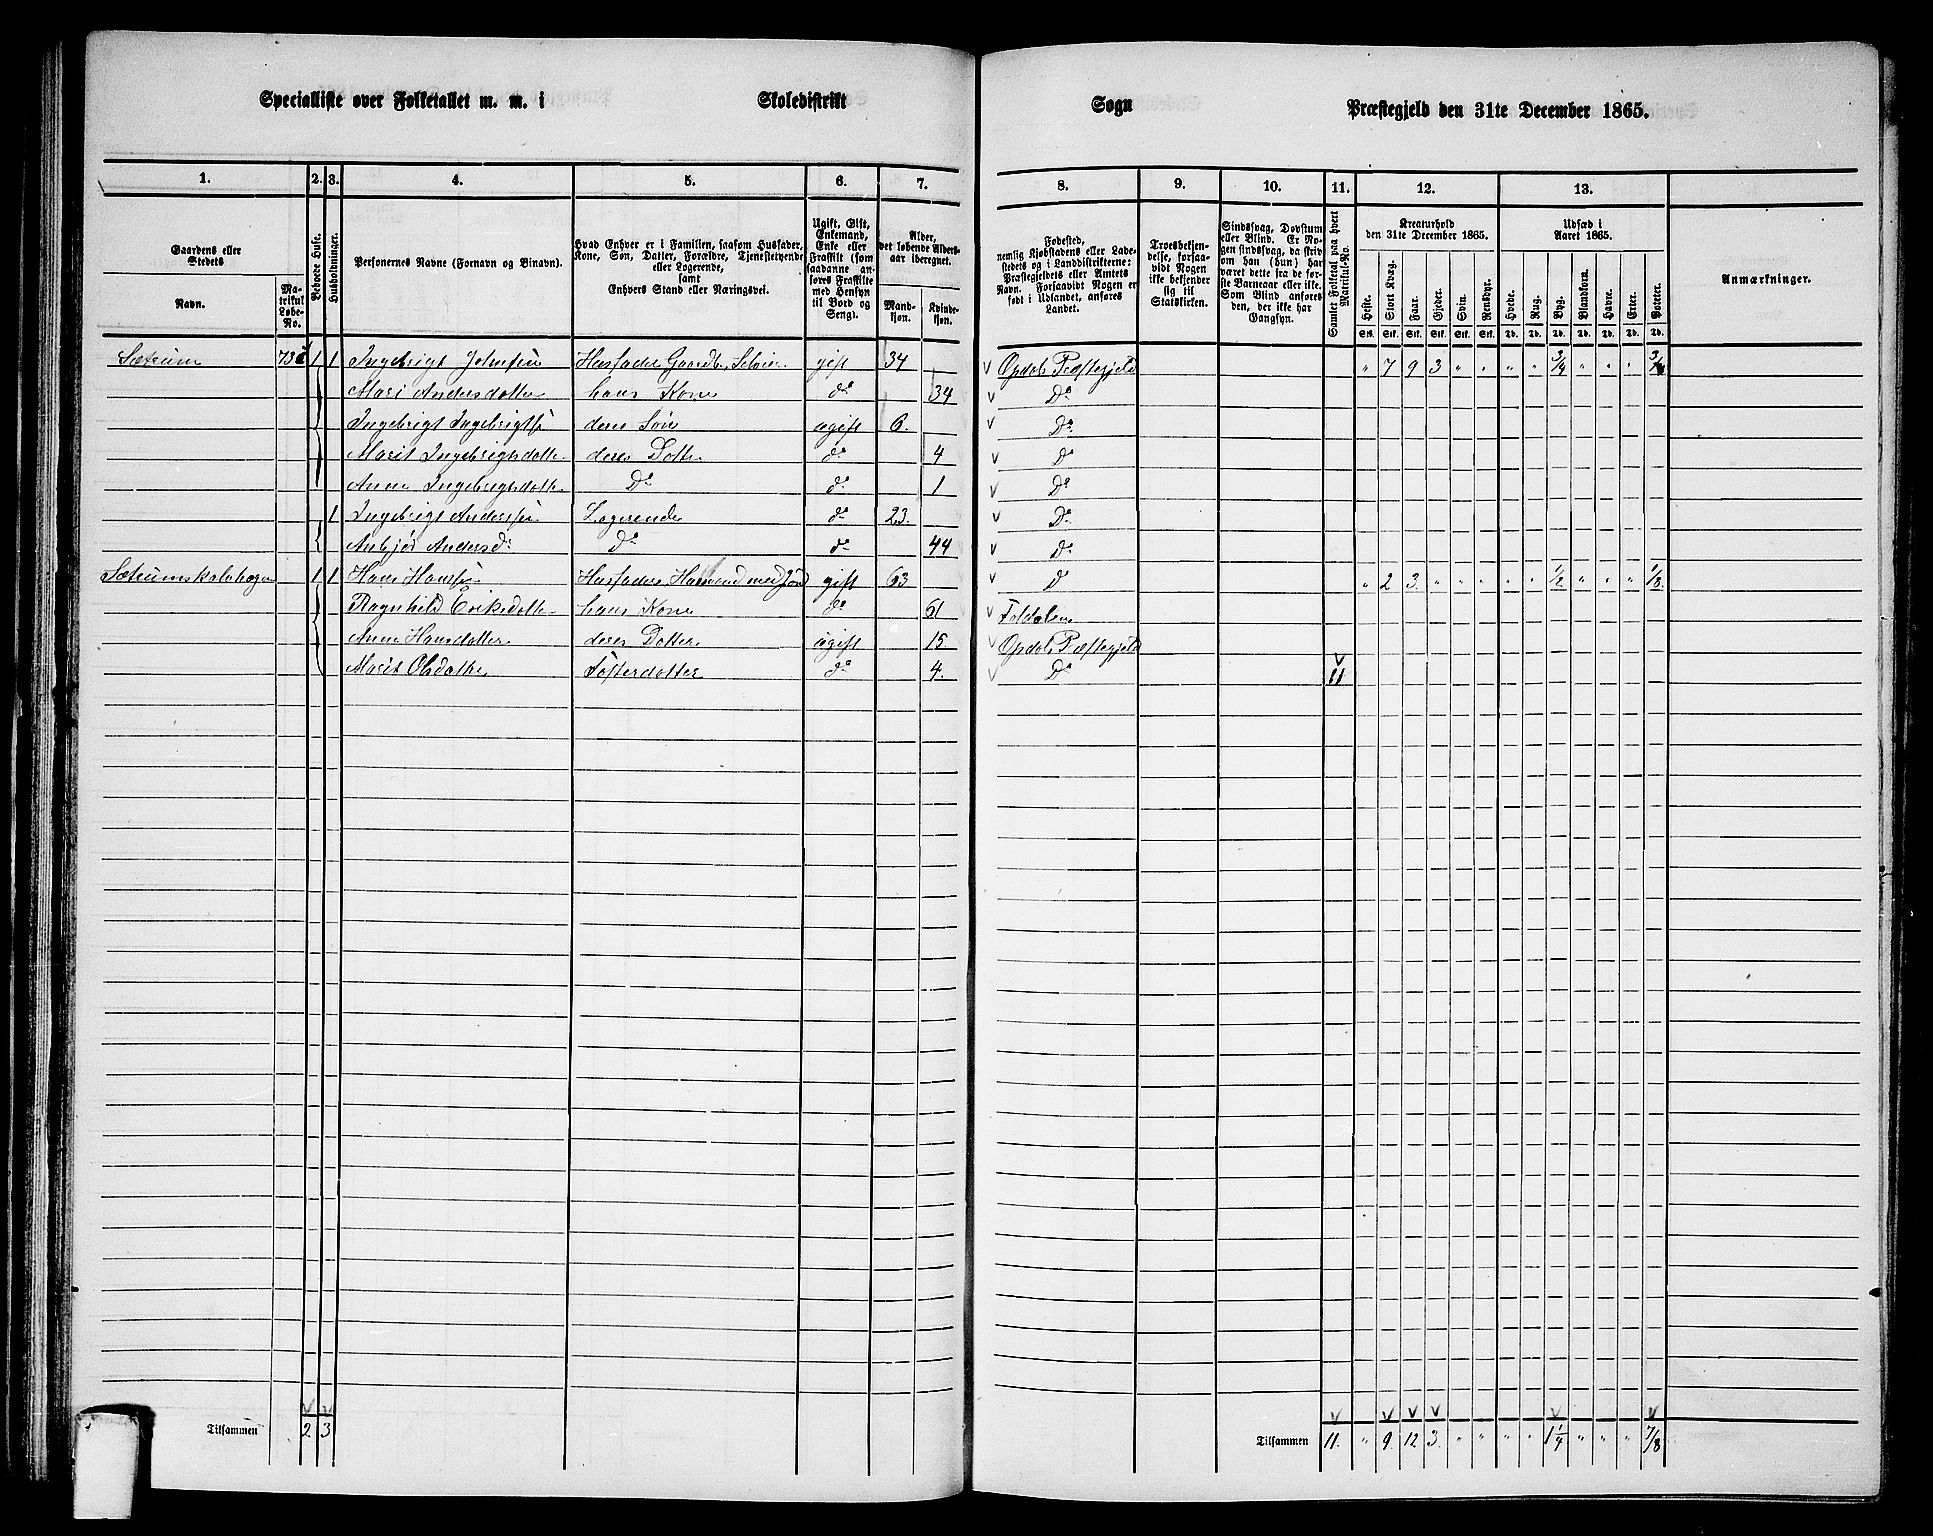 Specialliste over Folketallet m. m. i Skoledistrikt Sogn Præstegjeld den 31te December 1865.
1. 2. 3. 4. 5. 6. 7. 8. 9. 10. 11. 12. 13.
Gaardens eller Stedets
Navn.
Matrikul Løbe-No.
Beboede Huse.
Husholdninger.
Personernes Navne (Fornavn og Binavn).
Hvad Enhver er i Familien, saasom Husfader,
Kone, Søn, Datter, Forældre, Tjenestetyende
eller Logerende,
samt
Enhvers Stand eller Næringsvei.
Ugift, Gift,
Enkemand,
Enke eller
Fraskilt (som
saadanne anføres
Fraskilte
med Hensyn
til Bord og
Seng).
Alder,
det løbende Alders-
aar iberegnet.
Mandkjøn.
Kvindekjøn.
Fødested,
nemlig Kjøbstadens eller Ladestedets
og i Landdistrikterne:
Præstegjeldets eller Amtets
Navn. Forsaavidt Nogen er
født i Udlandet, anføres
Landet.
Troesbekjendelse,
forsaavidt
Nogen
ikke bekjender
sig til
Statskirken.
Sindssvag, Døvstum
eller Blind. Er Nogen
sindssvag, da skrives
om han (hun) har
været dette fra de første
Barneaar eller ikke.
Som Blind anføres
den, der ikke har
Gangsyn.
Samlet Folketal paa hvert Matrikul-No.
Kreaturhold
den 31te December 1865.
Heste. Stort Kvæg. Faar. Gjeder. Svin. Rensdyr.
Stk. Stk. Stk. Stk. Stk. Stk.
Udsæd i
Aaret 1865.
Hvede. Rug. Byg. Blandkorn. Havre. Erter. Poteter.
Td. Td. Td. Td. Td. Td. Td.
Anmærkninger.
Sætrum 1 1 Ingebrigt Johnsen Husfader Gaardb. Selveier gift 34 Opdals Præstegjeld " 7 9 3 " " " " 3/4 " " " 3/4
Mari Andersdotter hans Kone do 34 Do
Ingebrigt Ingebrigts. deres Søn ugift 6. Do
Marit Ingebrigtsdotter deres Dotter do 4 Do
Anne Ingebrigtsdotter Do do 1 Do
1 Ingebrigt Andersen Logerende do 23. Do
Anbjør Andersd. Do do 44 Do
Sætrumskalvhagen 1 1 Hans Hansen Husfader Husmand med Jord gift 63 Do " 2 3. " " " " " 1/2 " " " 1/8.
Ragnhild Eriksdotter hans Kone do 61 Foldalen
Anne Hansdotter deres Dotter ugift 15. Opdals Præstegjeld
Marit Olsdotter Fosterdotter do 4. Do 11
Tilsammen 2 3 Tilsammen 11. " 9. 12 3. " " " " 1 1/4 " " " 7/8